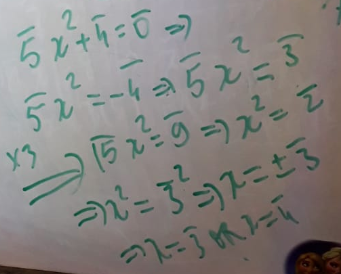 5̄x² + 4̄ = 0̄ ⇒
5̄x² = -4̄ ⇒ 5̄x² = 3̄
×3 ⇒ 1̄5̄x² = 9̄ ⇒ x² = 2̄
⇒ x² = 3̄² ⇒ x = ±3̄
⇒ x = 3̄ OR x = 4̄